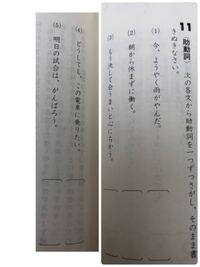 11
助動詞 次の各文から助動詞を一つずつさがし、そのまま書
きぬきなさい。
(1) 今、ようやく雨がやんだ。
(2) 朝から休まずに働く。
(3) もう決して会うまいと心にちかう。
(4) どうしても、この電車に乗りたい。
(5) 明日の試合は、がんばろう。